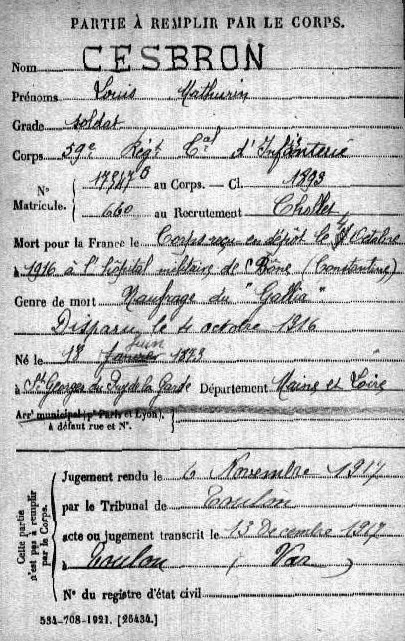 PARTIE À REMPLIR PAR LE CORPS.
Nom CESBRON
Prénoms Louis Mathurin
Grade soldat
Corps 59e Régt Cal d'Infanterie
N° Matricule. 17347 au Corps. — Cl. 1893
660 au Recrutement Cholet
Mort pour la France le Corps reçu en dépôt le Octobre
1916 à l'hôpital militaire de Bône (Constantine)
Genre de mort Naufrage du "Gallia"
Disparu le 4 octobre 1916
Né le 18 juin 1873
à St Georges du Puy de la Garde Département Maine et Loire
Arrt municipal (pr Paris et Lyon),
à défaut rue et N°.
Cette partie n'est pas à remplir par le Corps.
Jugement rendu le 6 Novembre 1917
par le Tribunal de Toulon
acte ou jugement transcrit le 13 Décembre 1917
à Toulon (Var)
N° du registre d'état civil
534-708-1921. [26434.]